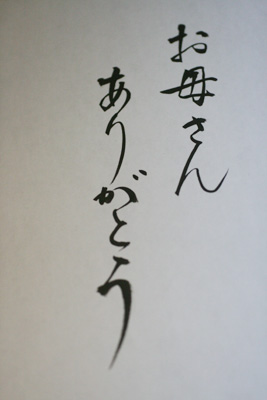 お母さん
ありがとう